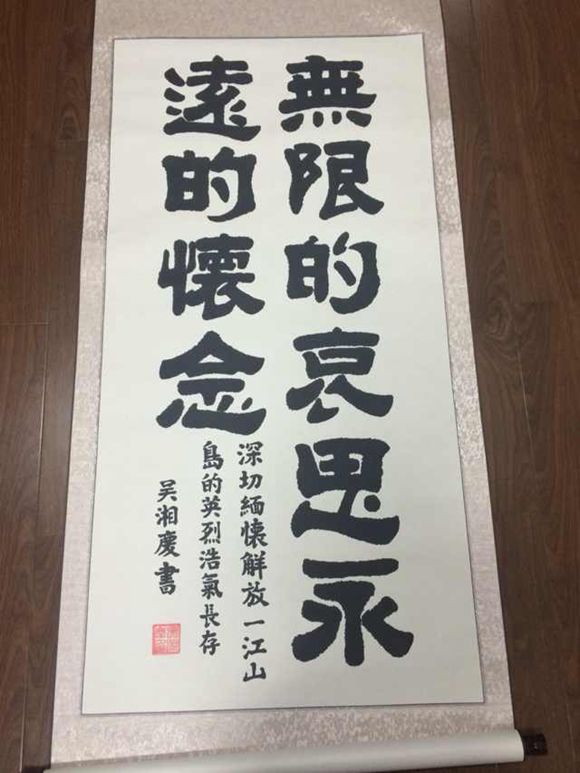 無限的哀思永
遠的懷念
深切緬懷解放一江山
島的英烈浩氣長存
吴湘慶書